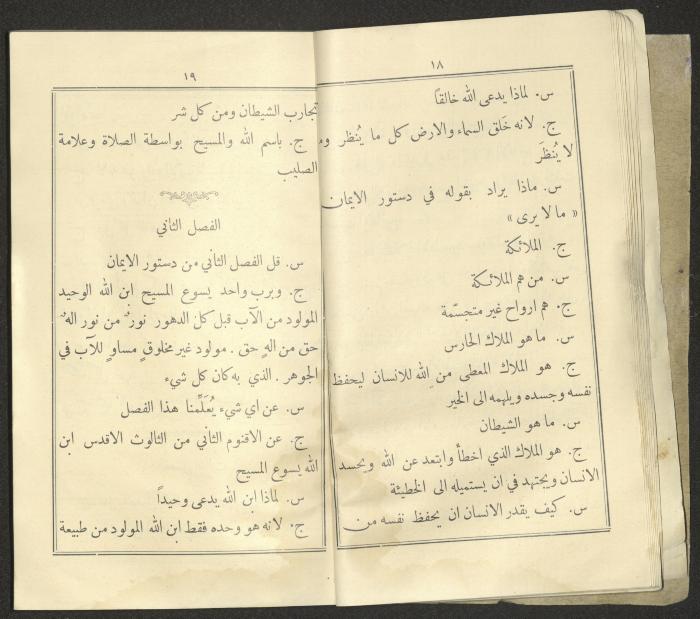 ١٨
س. لماذا يدعى الله خالقًا
ج. لانه خَلق السماء والارض كل ما يُنظر وم
لا يُنظَر
س. ماذا يراد بقوله في دستور الايمان
« ما لا يرى »
ج. الملائكة
س. من هم الملائكة
ج. هم ارواح غير متجسّمة
س. ما هو الملاك الحارس
ج. هو الملاك المعطى من الله للانسان ليحفظ
نفسه وجسده ويلهمه الى الخير
س. ما هو الشيطان
ج. هو الملاك الذي اخطأ وابتعد عن الله ويحسد
الانسان ويجتهد في ان يستميله الى الخطيئة
س. كيف يقدر الانسان ان يحفظ نفسه من
١٩
تجارب الشيطان ومن كل شر
ج. باسم الله والمسيح بواسطة الصلاة وعلامة
الصليب
الفصل الثاني
س. قل الفصل الثاني من دستور الايمان
ج. وبرب واحد يسوع المسيح ابن الله الوحيد
المولود من الآب قبل كل الدهور نورٌ من نور الهٌ
حق من الهٍ حق. مولود غير مخلوقٍ مساوٍ للآب في
الجوهر. الذي به كان كل شيء
س. عن اي شيء يُعَلِّمنا هذا الفصل
ج. عن الاقنوم الثاني من الثالوث الاقدس ابن
الله يسوع المسيح
س. لماذا ابن الله يدعى وحيداً
ج. لانه هو وحده فقط ابن الله المولود من طبيعة